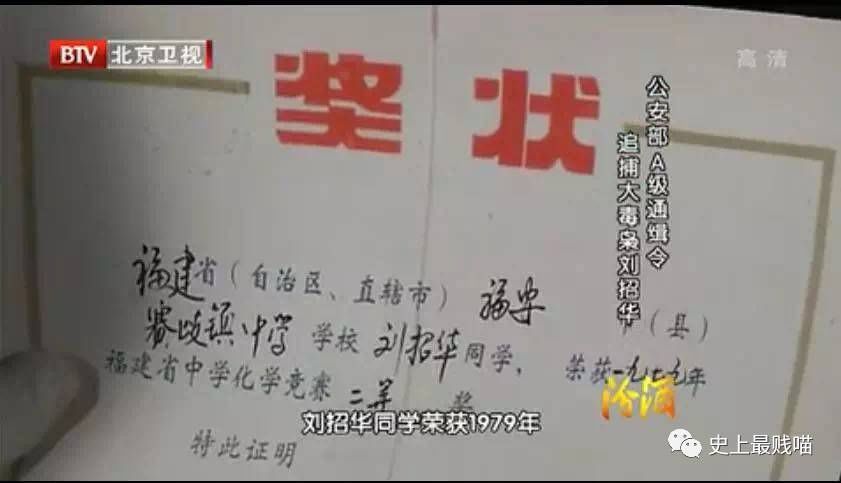 BTV 北京卫视
高清
奖状
公安部A级通缉令
追捕大毒枭刘招华
福建省（自治区、直辖市）福安市（县）
赛岐镇中学学校刘招华同学，荣获一九七九年
福建省中学化学竞赛二等奖
特此证明
汾酒
刘招华同学荣获1979年
史上最贱喵